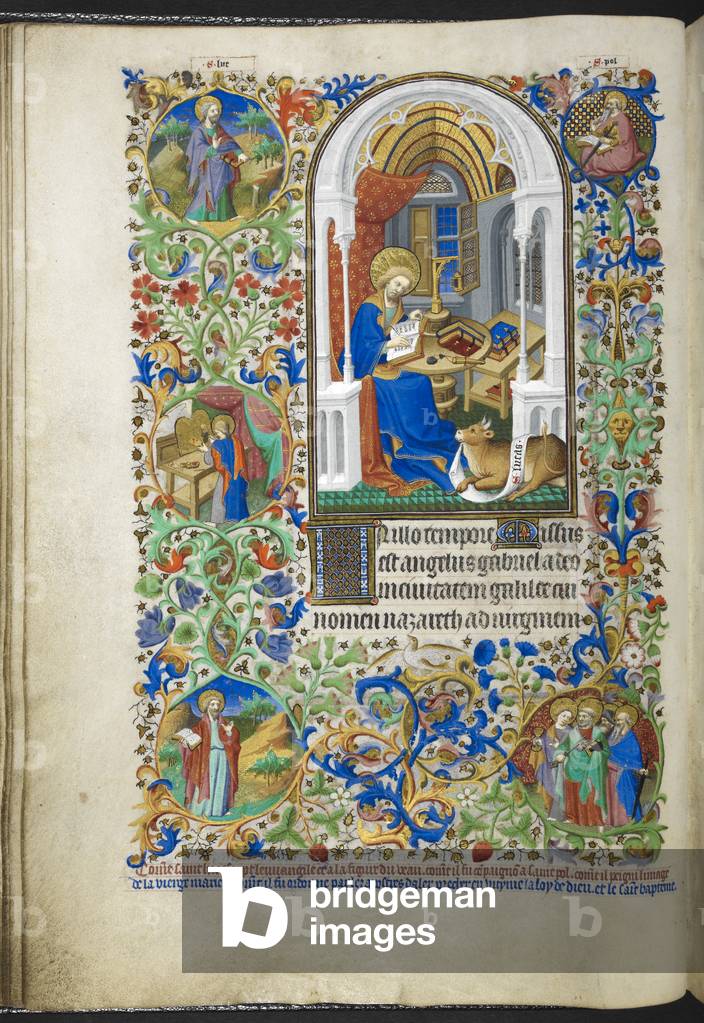 S. luc
S. pol
S. lucas.
IN illo tempore Missus
est angelus gabriel a deo
in civitatem galilee cui
nomen nazareth ad virginem
Coment saint
leuvangile et a la figure du veau. coment il fu compaignon a saint pol. coment il peigni lymage
de la vierge marie
bridgeman
images